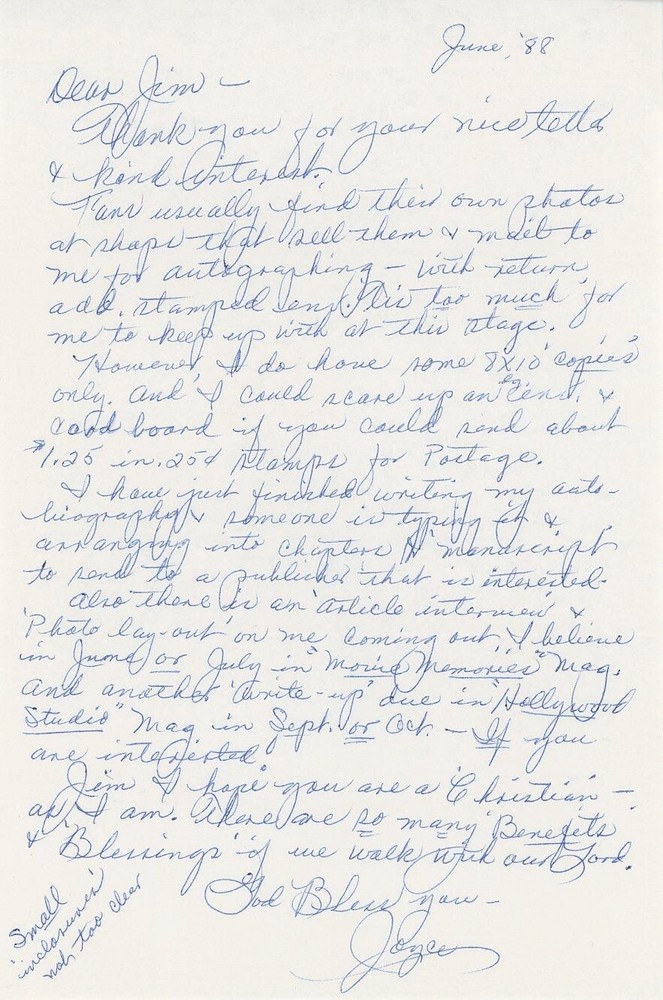 June, '88
Dear Jim –
Thank you for your nice letter
& kind interest.
Fans usually find their own photos
at shops that sell them & mail to
me for autographing – with return
add. stamped env. 'Tis too much for
me to keep up with at this stage.
However, I do have some 8x10 "copies"
only. And I could scare up an env. &
card board if you could send about
$1.25 in .25¢ stamps for Postage.
I have just finished writing my auto-
biography & someone is typing it &
arranging into chapters & manuscript
to send to a publisher that is interested.
Also there is an article interview &
'Photo lay-out' on me coming out, I believe
in June or July in "Movie Memories" Mag.
And another 'write-up' due in "Hollywood
Studio" Mag in Sept. or Oct. – If you
are interested.
Jim I hope you are a 'Christian' –
as I am. There are so many 'Benefits
& Blessings' if we walk with our Lord.
God Bless you –
Joyce
Small
'inclosures'
not too clear